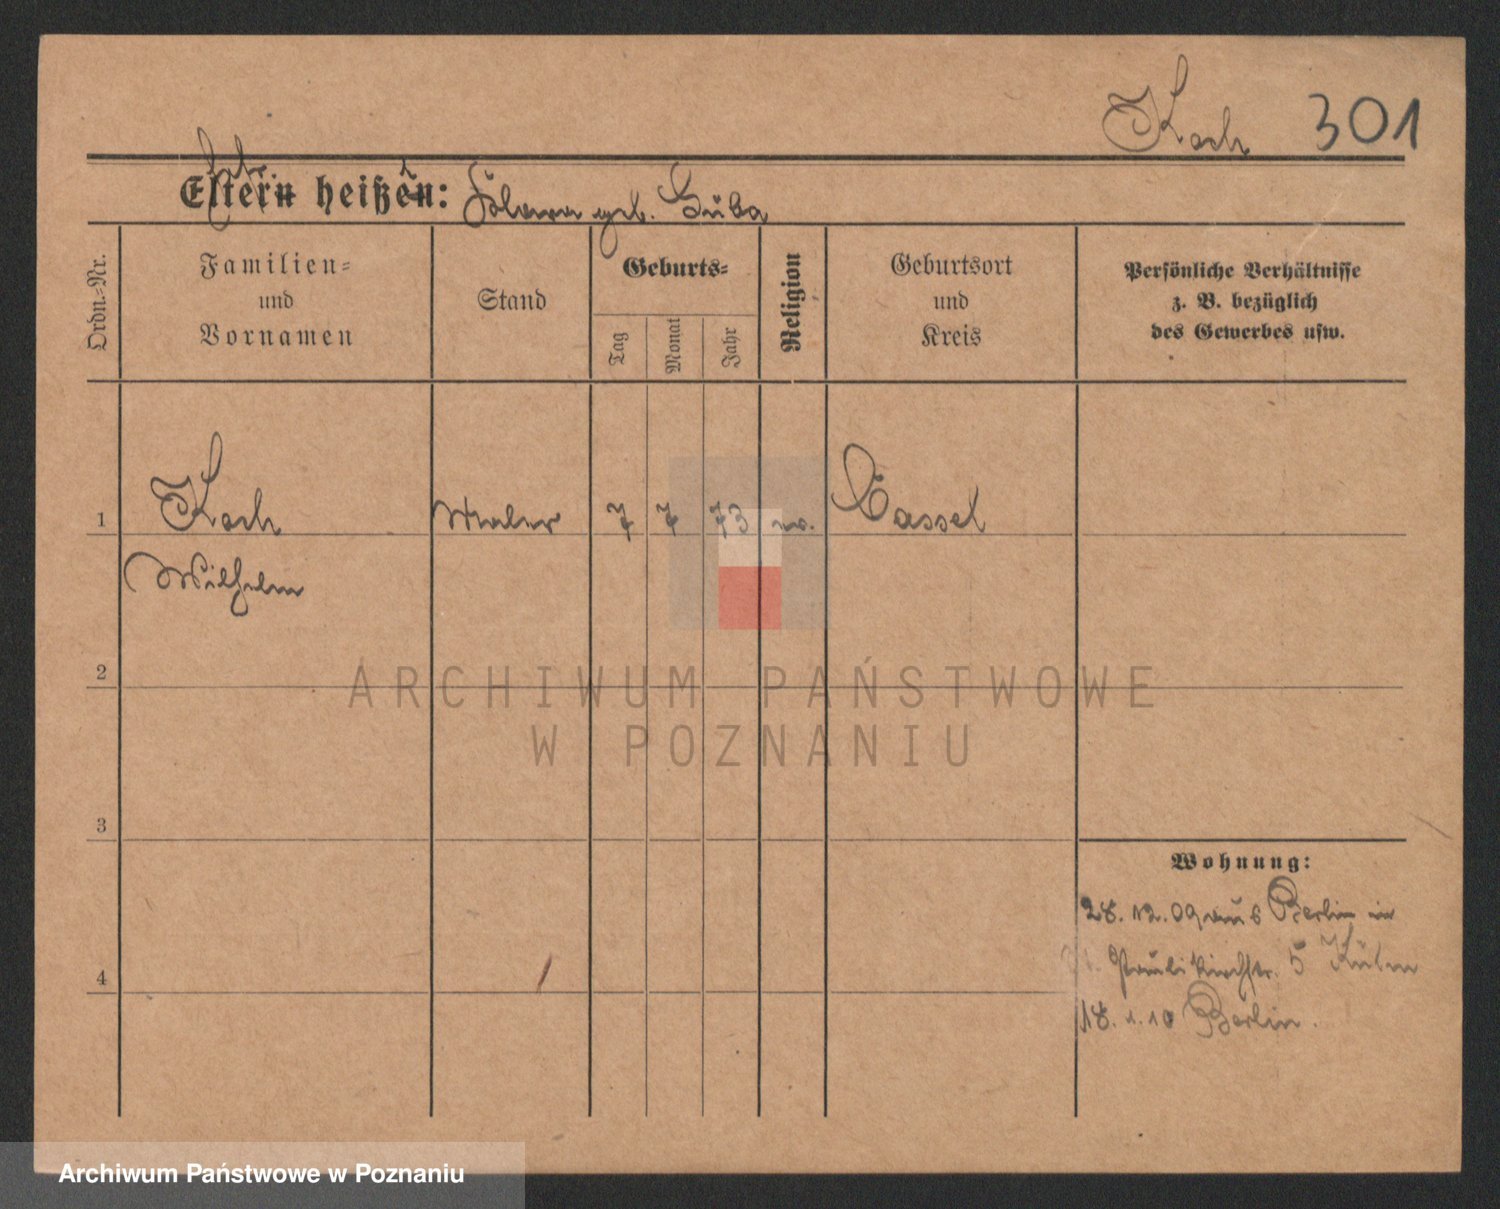 Koch 301
Eltern heißen: Klara geb.
Ordn.-Nr.
Familien-
und
Vornamen
Stand
Geburts-
Tag
Monat
Jahr
Religion
Geburtsort
und
Kreis
Persönliche Verhältnisse
z. B. bezüglich
des Gewerbes usw.
1 Koch Maler 7 7 73 ev. Cassel
Wilhelm
2
ARCHIWUM PAŃSTWOWE
W POZNANIU
3
Wohnung:
28. 12. 09 aus Berlin in
Paulikirchstr. 5
4
18. 1. 10 Berlin.
Archiwum Państwowe w Poznaniu